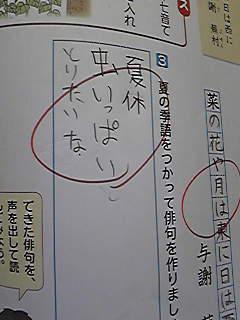 菜の花や月は東に日は西
与謝
3 夏の季語をつかって俳句を作りまし
夏休
虫いっぱい
とりたいな
できた俳句を、
声を出して読
日は西に
蕪村
七音で
入れ